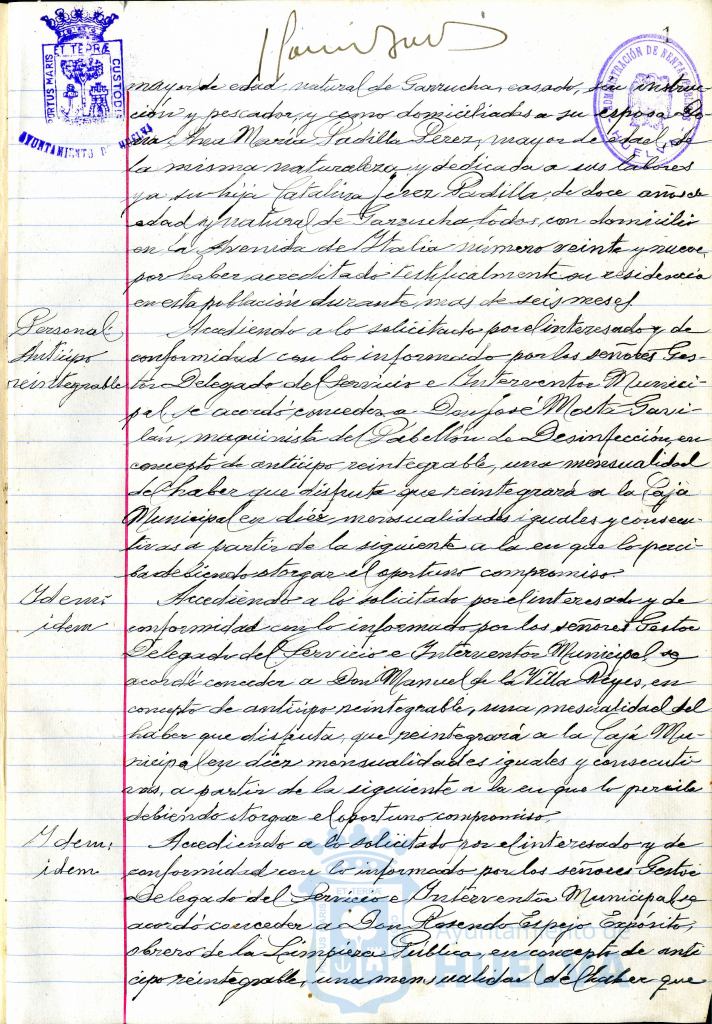 1
PORTUS MARIS ET TERRÆ CUSTODIA
AYUNTAMIENTO DE HUELVA
ADMINISTRACIÓN DE RENTAS PÚBLICAS
HUELVA
mayor de edad, natural de Garrucha, casado, sin instruc-
ción y pescador, y como domiciliados a su esposa Do-
ña Ana María Padilla Pérez, mayor de edad, de
la misma naturaleza, y dedicada a sus labores
y a su hija Catalina Jerez Padilla, de doce años de
edad y natural de Garrucha, todos, con domicilio
en la Avenida de Italia número veinte y nueve,
por haber acreditado testificalmente su residencia
en esta población durante mas de seis meses
Personal:
Anticipo
reintegrable
Accediendo a lo solicitado por el interesado y de
conformidad con lo informado por los señores Ges-
tor Delegado del Servicio e Interventor Munici-
pal se acordó conceder a Don José Mota Gavi-
lán, maquinista del Pabellón de Desinfección, en
concepto de anticipo reintegrable, una mensualidad
del haber que disfruta que reintegrará a la Caja
Municipal en diez mensualidades iguales y consecu-
tivas a partir de la siguiente a la en que lo perci-
ba debiendo otorgar el oportuno compromiso.
Idem:
idem
Accediendo a lo solicitado por el interesado y de
conformidad con lo informado por los señores Gestor
Delegado del Servicio e Interventor Municipal se
acordó conceder a Don Manuel de la Villa Reyes, en
concepto de anticipo reintegrable, una mesualidad del
haber que disfruta, que reintegrará a la Caja Mu-
nicipal en diez mensualidades iguales y consecuti-
vas, a partir de la siguiente a la en que lo perciba
debiendo otorgar el oportuno compromiso.
Idem:
idem
Accediendo a lo solicitado por el interesado y de
conformidad con lo informado por los señores Gestor
Delegado del Servicio e Interventor Municipal se
acordó conceder a Don Rosendo Expósito,
obrero de la Limpieza Pública, en concepto de anti
cipo reintegrable, una mensualidad del haber que
Ayuntamiento de
HUELVA